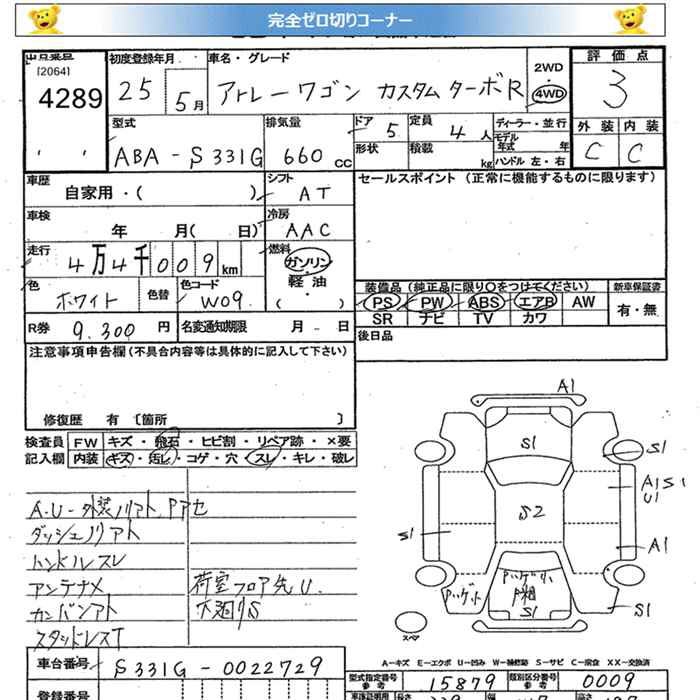 完全ゼロ切りコーナー
出品票番
[2064]
4289
初度登録年月
25 5月
車名・グレード
アトレーワゴン カスタムターボR
2WD
4WD
評価点
3
外装 内装
C C
型式
ABA-S331G
排気量
660 cc
ドア 5
定員 4 人
形状
積載 kg
ディーラー・並行
モデル年式 年
ハンドル 左・右
車歴
自家用・( )
シフト
AT
セールスポイント (正常に機能するものに限ります)
車検
年 月( 日)
冷房
AAC
走行
4万4千009km
燃料
ガソリン
軽油
( )
色
ホワイト
色替
色コード
W09
装備品 (純正品に限り〇をつけてください)
新車保証書
PS PW ABS エアB AW
有・無
SR ナビ TV カワ
R券 9,300 円
名変通知期限 月 日
後日品
注意事項申告欄(不具合内容等は具体的に記入して下さい)
修復歴 有 〔箇所 〕
検査員 FW キズ・飛石・ヒビ割・リペア跡・×要
記入欄 内装 キズ・汚レ・コゲ・穴・スレ・キレ・破レ
A.U-外装ノリアト、Pアセ
ダッシュノリアト
ハンドルスレ
アンテナメ
荷室フロア先U.
カンバンアト
下廻りS
スタッドレスT
A1
S1
S1
A1 S1
U1
S2
S1
A1
Pハゲ
S1
S1
スペア
A-キズ E-エクボ U-凹み W-補修跡 S-サビ C-腐食 XX-交換済
車台番号
S331G-0022729
型式指定番号
参考
15879
類別区分番号
参考
0009
登録番号
長さ